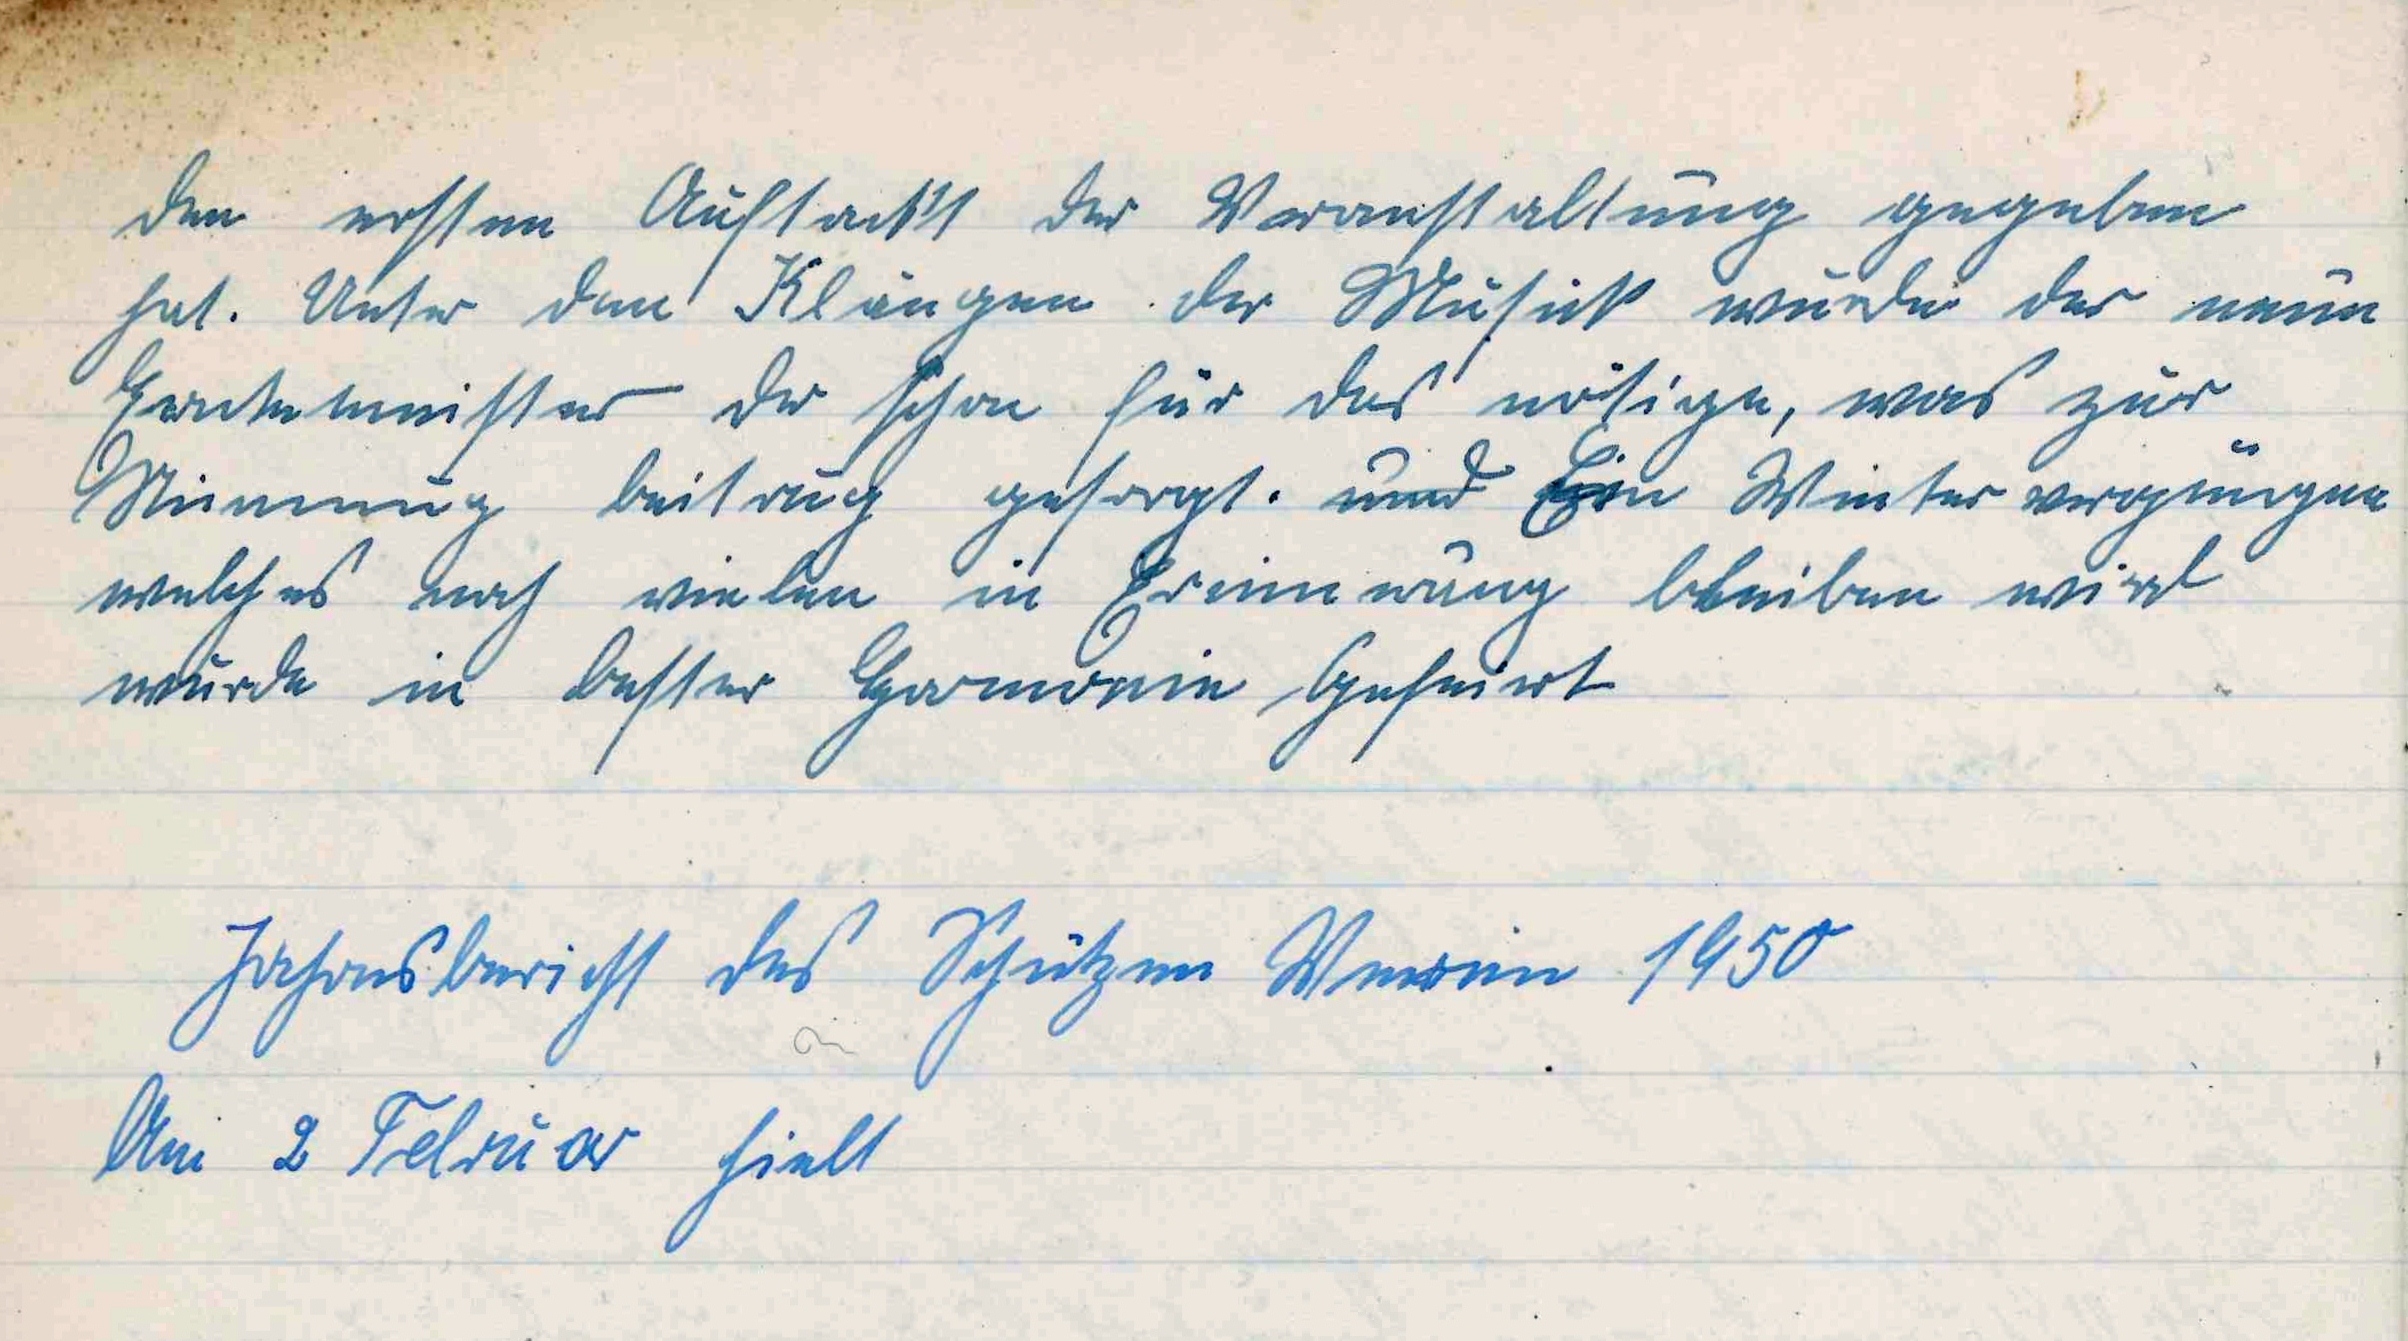 den ersten Auftackt der Veranstaltung gegeben
hat. Unter den Klängen der Musick wurde der neue
der schon für das nötige, was zur
Stimmung beitrug gesorgt. und Ein Winter vergnügen
welches noch vielen in Erinnerung bleiben wird
wurde in bester Harmonie Gefeiert
Jahresbericht des Schützen Verein 1950
Am 2 Februar hielt